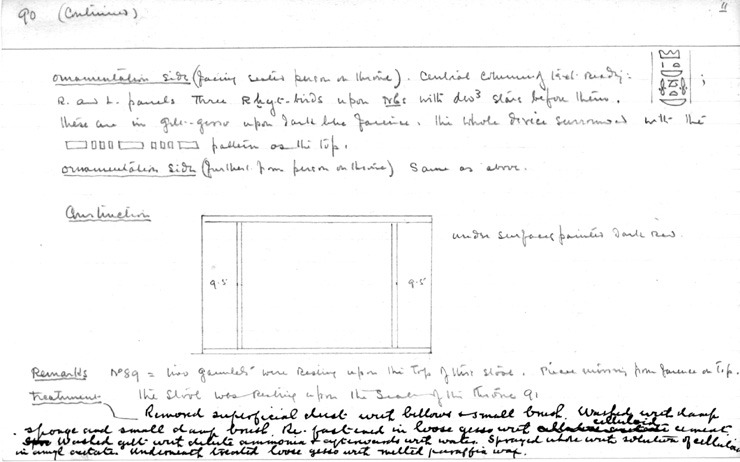 90 (Continued)
11
ornamentation side (facing seated person on throne). Central column of text reading: ;
R. and L. panels three Rhyt-birds upon Nbs with dw³ stars before them.
These are in gilt-gesso upon dark blue faience. The whole device surrounded with the
pattern as the top.
ornamentation side (furthest from person on throne) Same as above.
Construction
under surfaces painted dark red.
9.5
9.5
Remarks No 89 = two gaming were resting upon the top of this stool. Piece missing from faience on top.
Treatment The stool was resting upon the Seat of the Throne 91
Removed superficial dust with bellows & small brush. Washed with damp
sponge and small damp brush. Re-fastened in loose gesso with celluloid cement
Washed gilt with dilute ammonia & afterwards with water. Sprayed whole with solution of celluloid
in amyl acetate. Underneath treated loose gesso with melted paraffin wax.